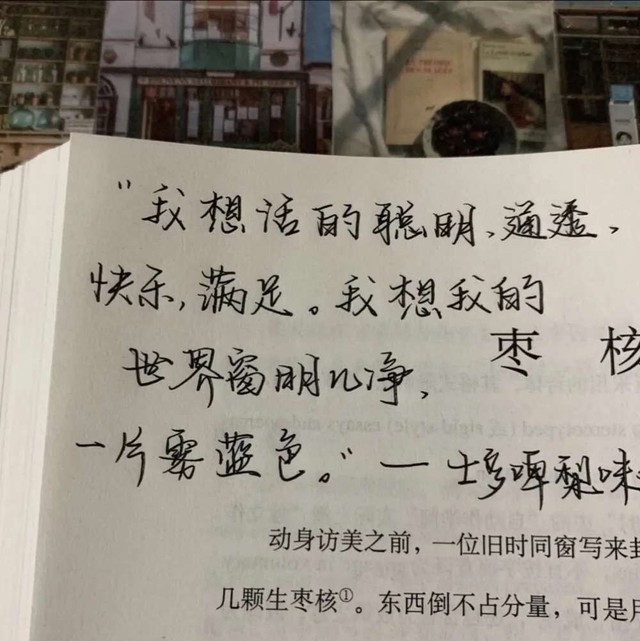 “我想活的聪明、通透，
快乐，满足。我想我的
枣 核
世界窗明几净，
一片雾蓝色。”— 土豆啤梨味
动身访美之前，一位旧时同窗写来封
几颗生枣核①。东西倒不占分量，可是用